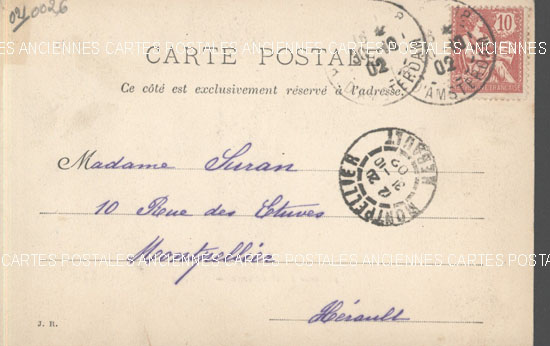 020026
10
CARTE POSTALE
ANCIENNES CARTES POSTALES ANCIENNES CARTES POSTALES ANCIENNES
Ce côté est exclusivement réservé à l'adresse.
02
AMSTERDAM
02
MONTPELLIER
HERAULT
Madame Suran
10 Rue des Etuves
Montpellier
CARTES POSTALES ANCIENNES CARTES POSTALES ANCIENNES CARTES
Hérault
J. R.